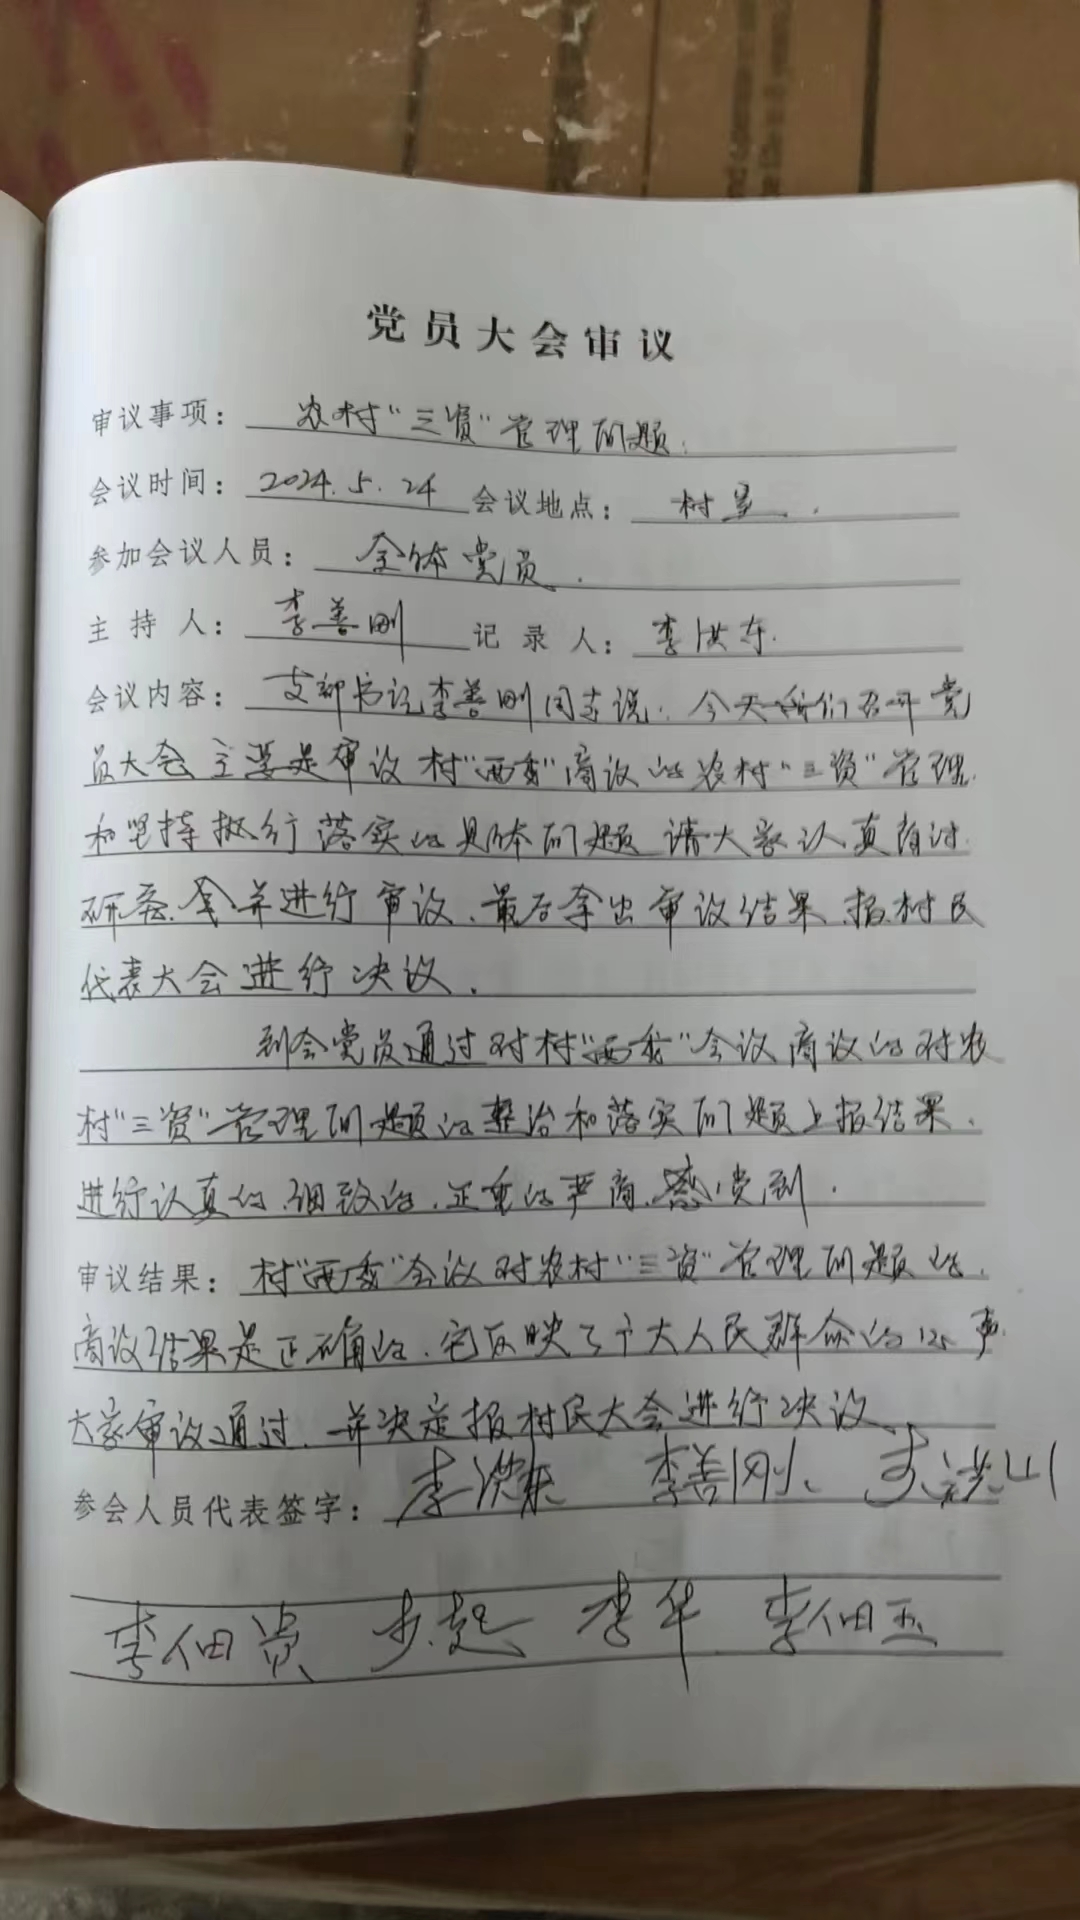 党员大会审议
审议事项：农村“三资”管理问题.
会议时间：2024.5.24 会议地点：村里.
参加会议人员：全体党员.
主持人：李善刚 记录人：李洪东.
会议内容：支部书记李善刚同志说：今天我们召开党
员大会 主要是审议村“两委”商议的农村“三资”管理.
和坚持挺行落实的具体问题 请大家认真商讨.
研查、并进行审议、最后拿出审议结果、报村民
代表大会进行决议.
到会党员通过对村“两委”会议商议的对农
村“三资”管理问题的整治和落实问题上报结果.
进行认真的、细致的、正重的严商、感觉到.
审议结果：村“两委”会议对农村“三资”管理问题的.
商议结果是正确的、它反映了广大人民群众的心声.
大家审议通过、并决定报村民大会进行决议
参会人员代表签字：李洪东 李善刚、李洪山
李佃贵 李华 李佃玉